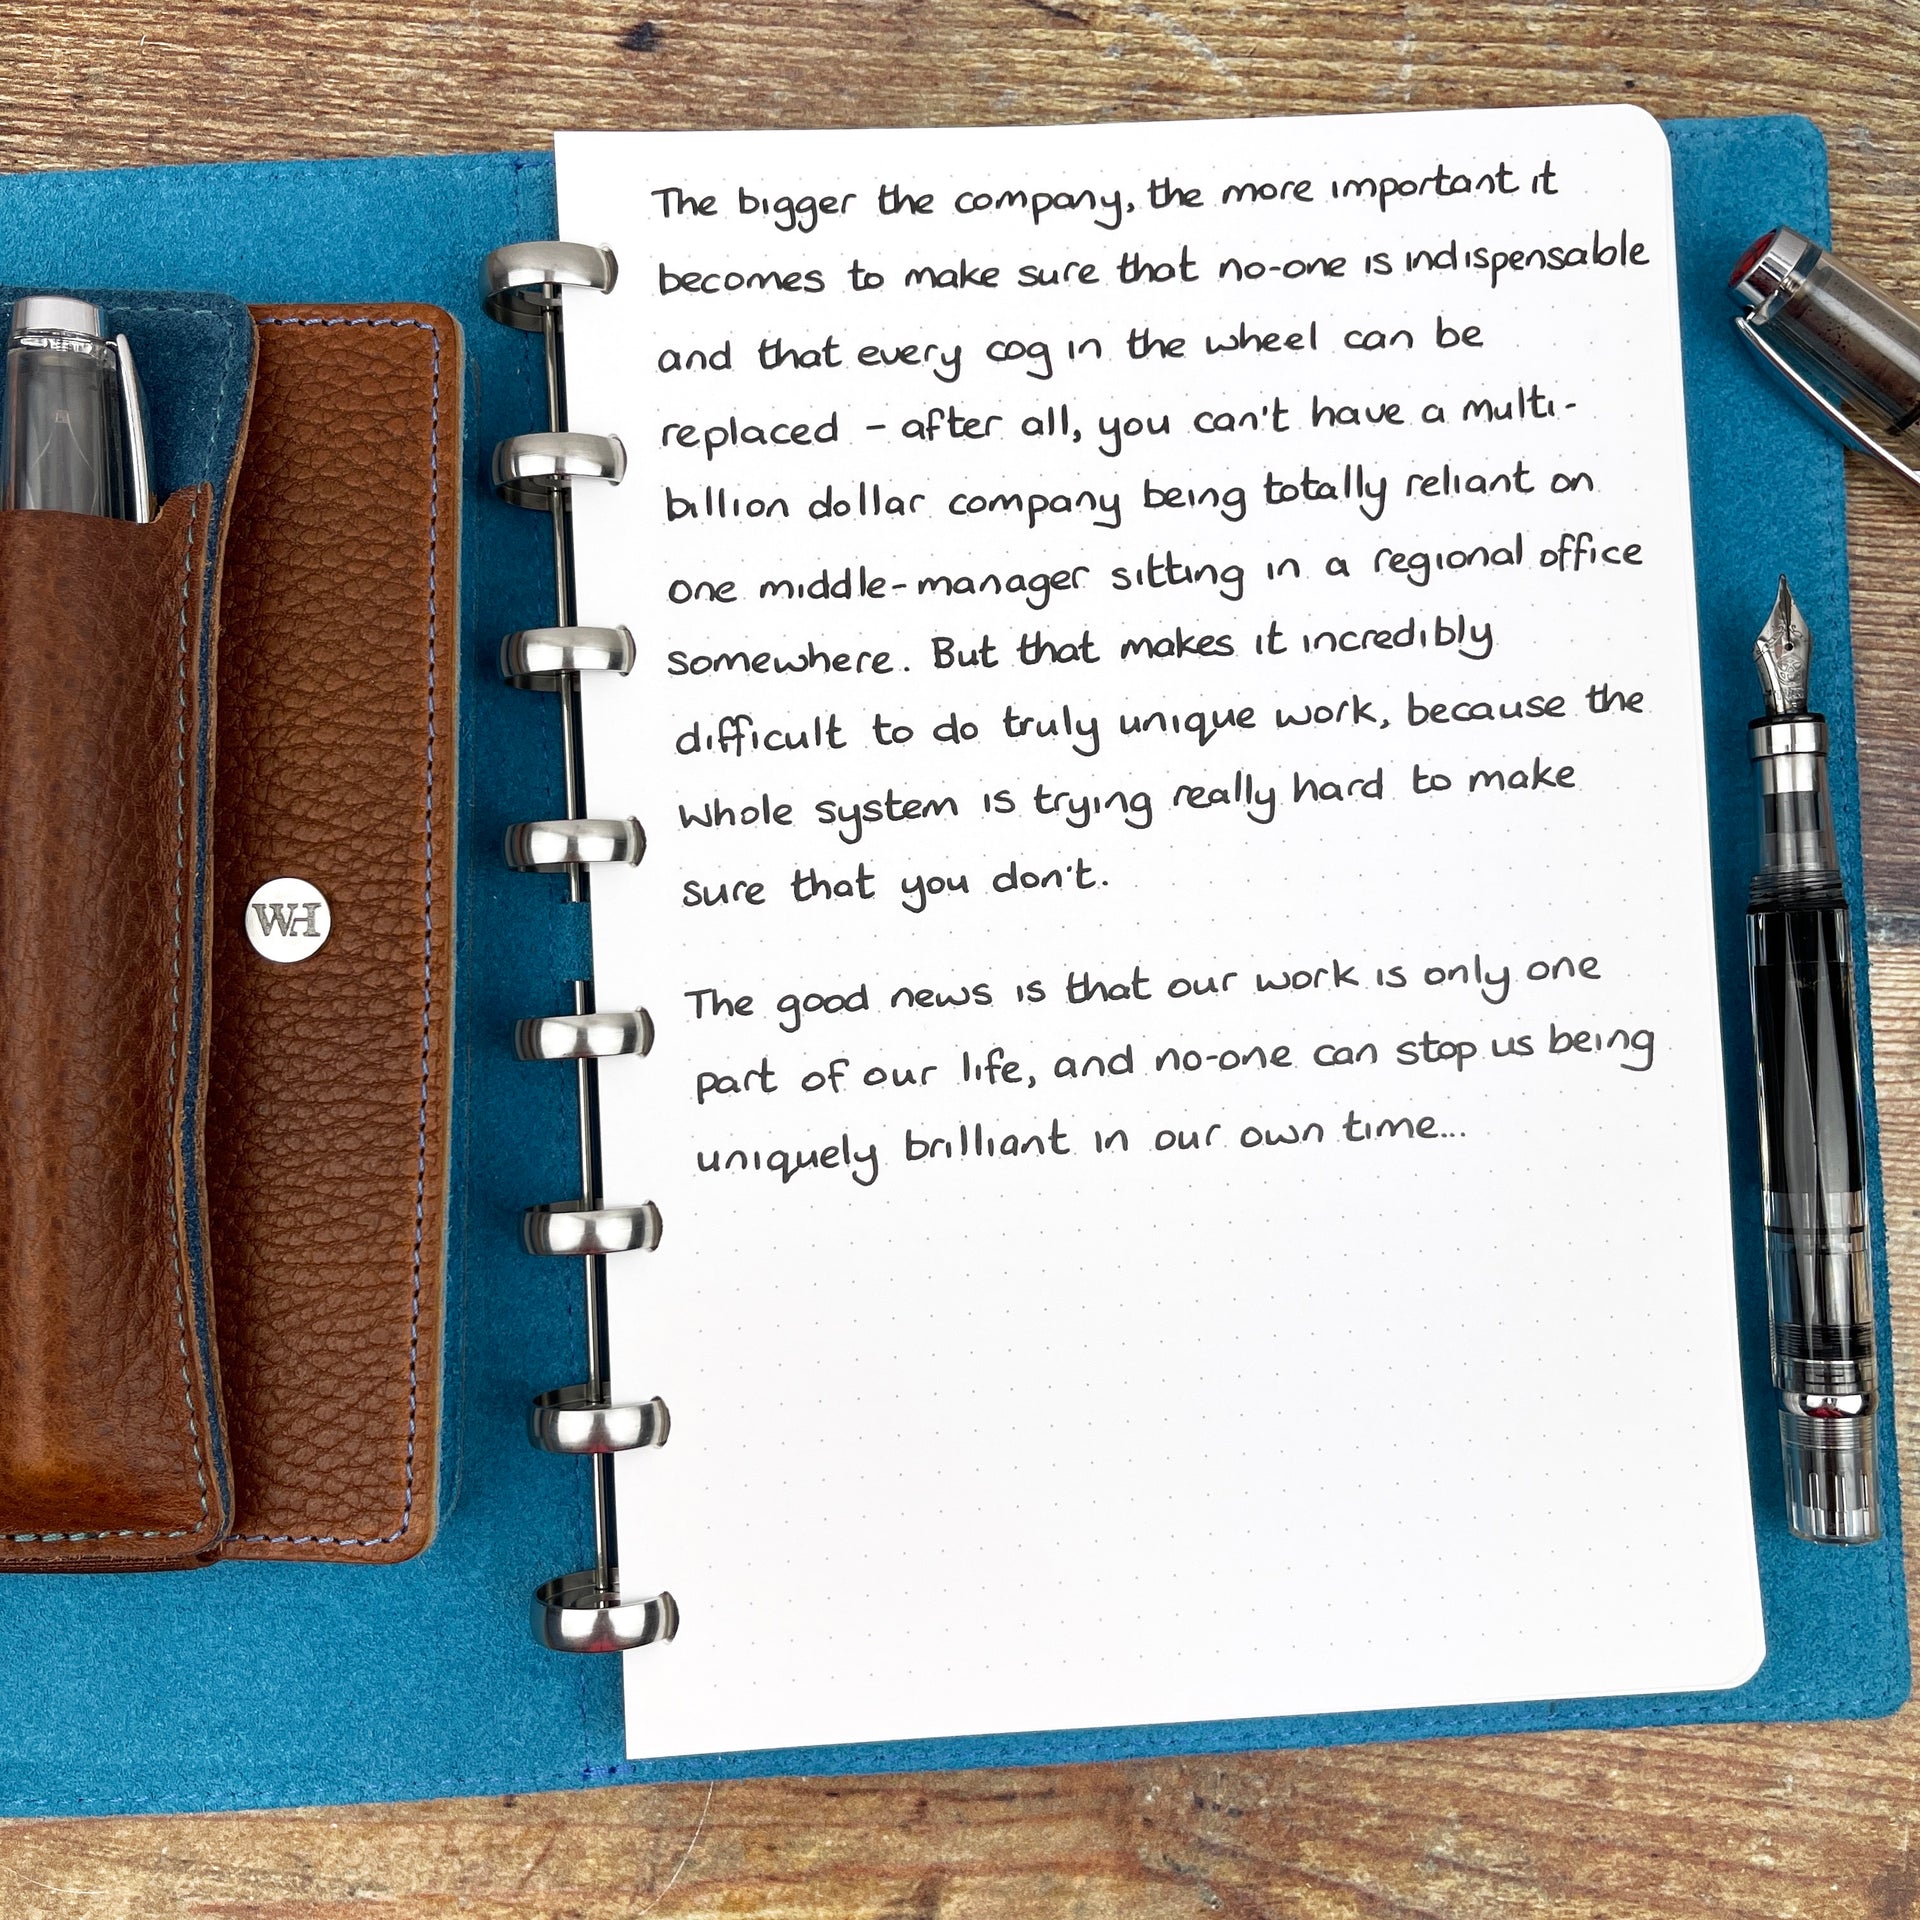 The bigger the company, the more important it
becomes to make sure that no-one is indispensable
and that every cog in the wheel can be
replaced - after all, you can't have a multi-
billion dollar company being totally reliant on
one middle-manager sitting in a regional office
somewhere. But that makes it incredibly
difficult to do truly unique work, because the
whole system is trying really hard to make
sure that you don't.
The good news is that our work is only one
part of our life, and no-one can stop us being
uniquely brilliant in our own time...
WH